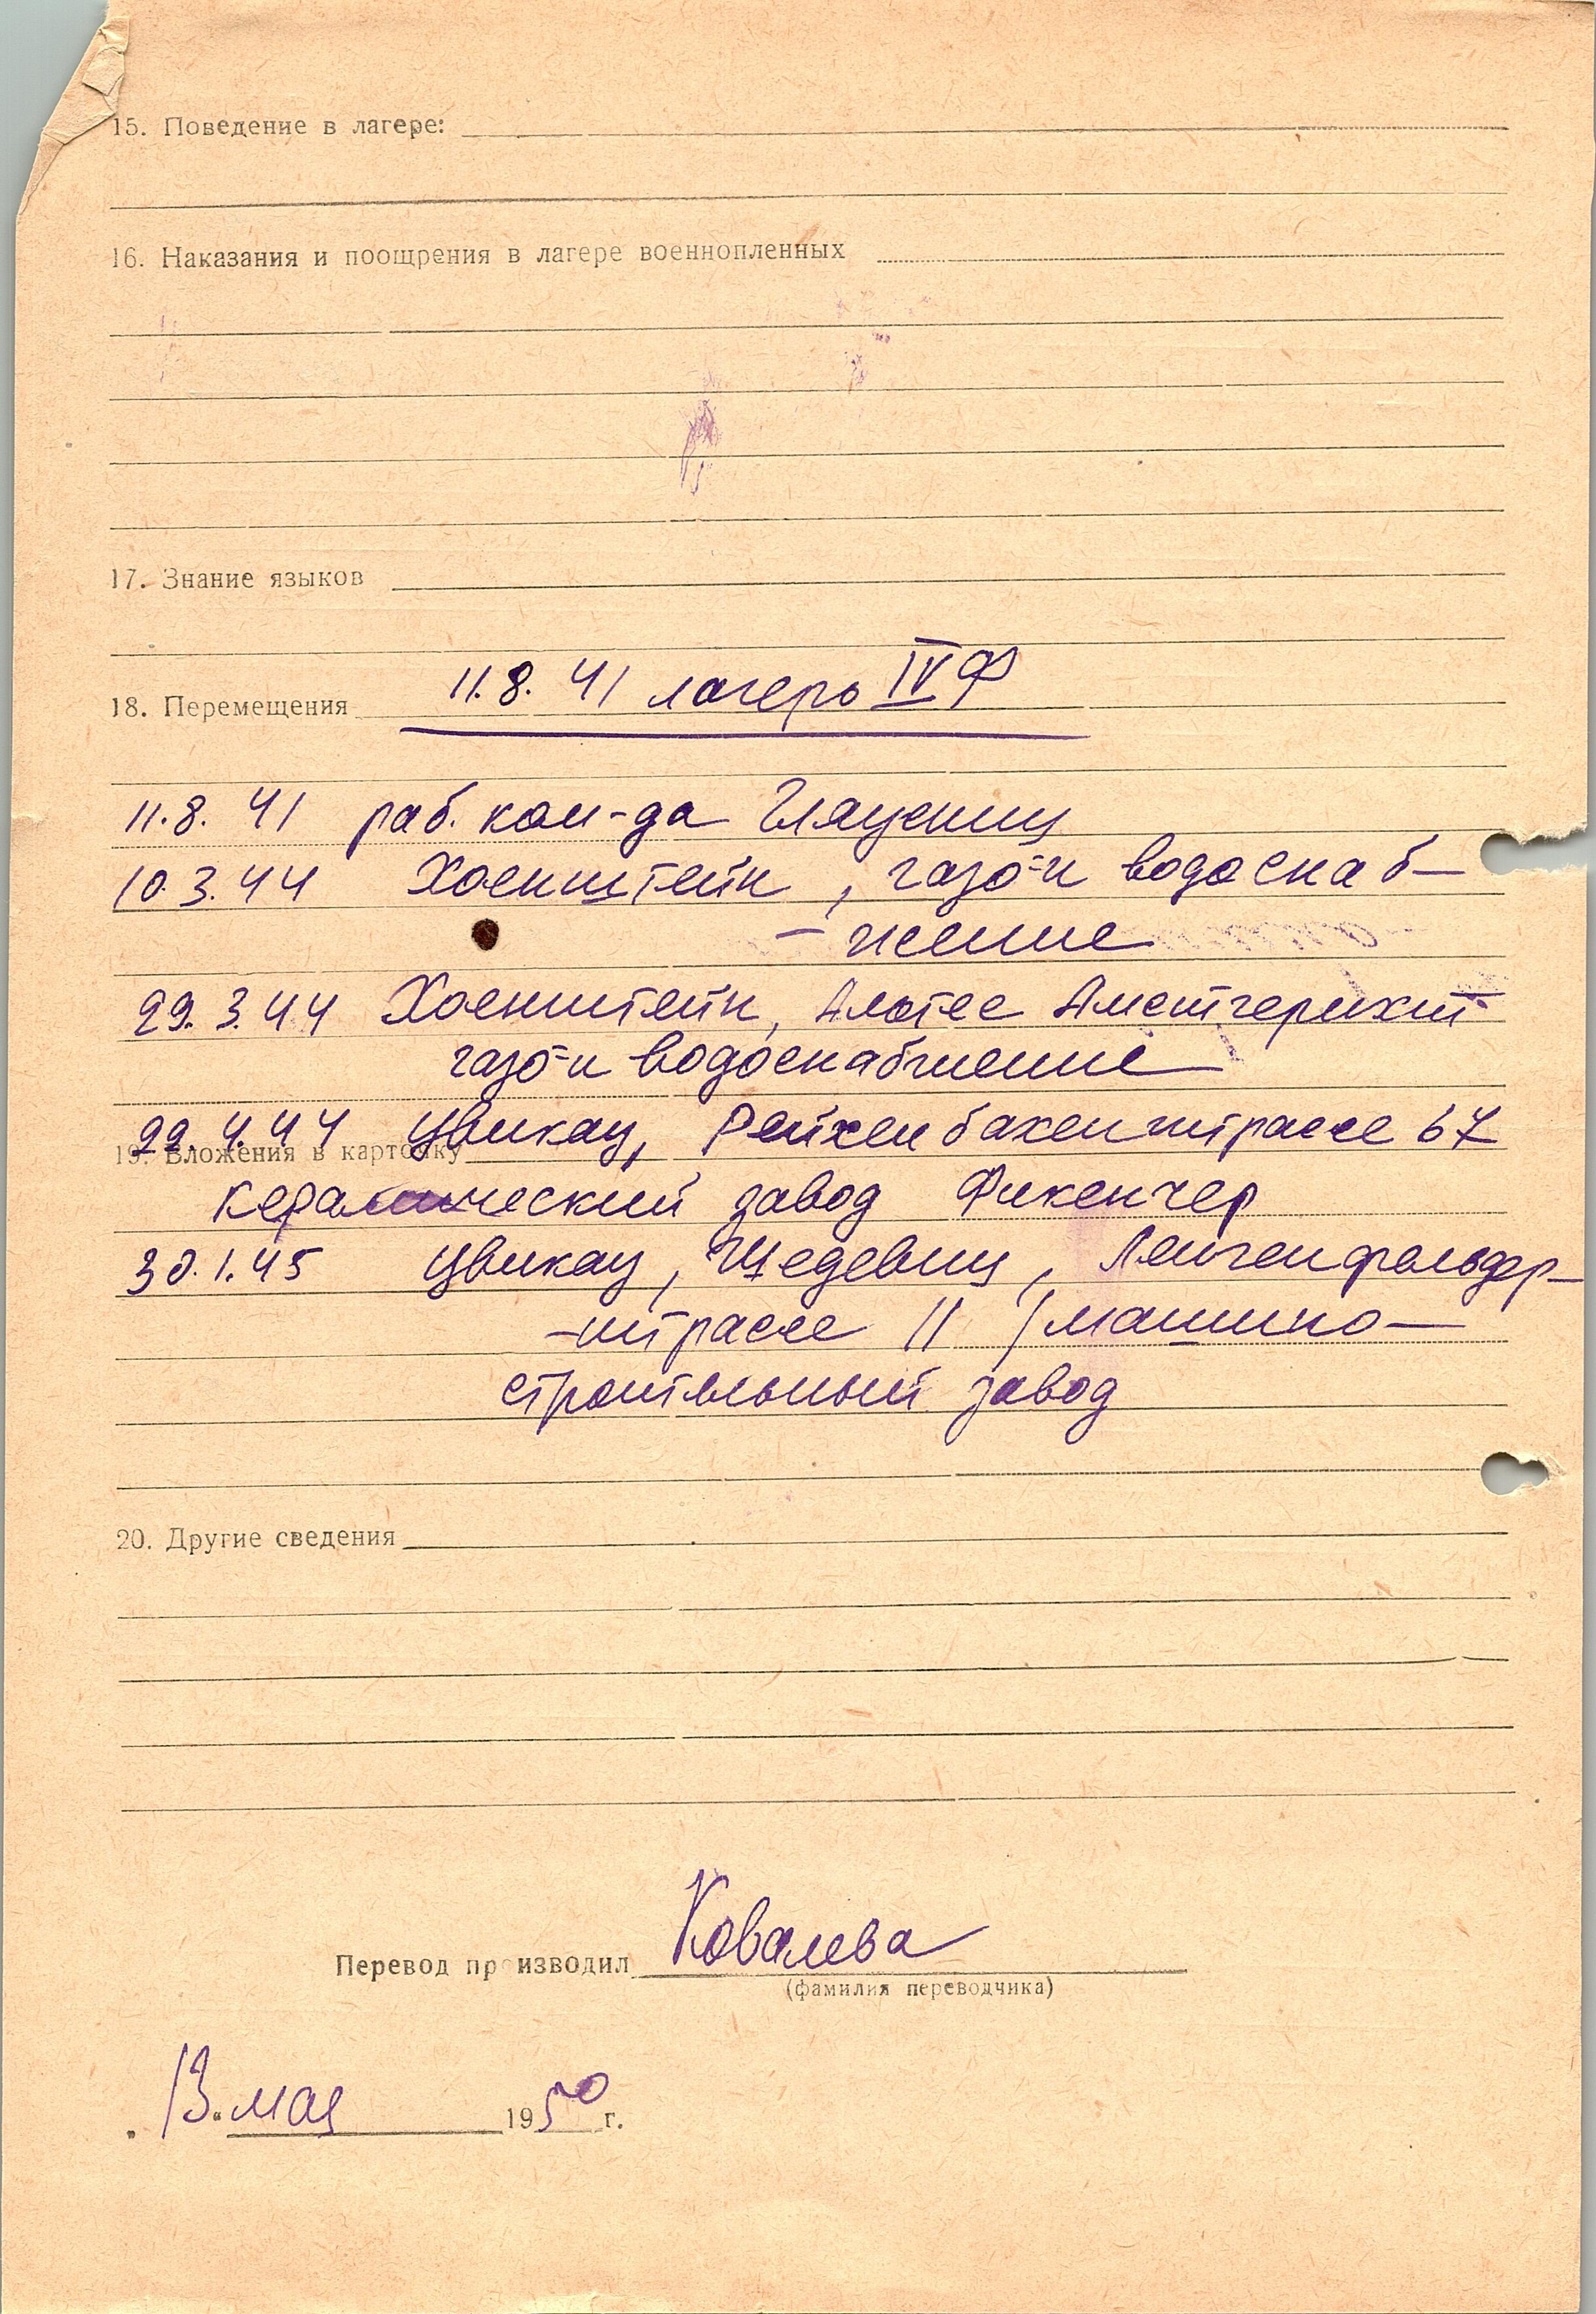 15. Поведение в лагере:
16. Наказания и поощрения в лагере военнопленных
17. Знание языков
18. Перемещения 11.8.41 лагерь IV Ф
11.8.41 раб. ком-да Глауениц
10.3.44 Хоенштейн, газо- и водоснаб-
-жение
29.3.44 Хоенштейн, Альтес Амстгерихт
газо- и водоснабжение
22.4.44 Цвикау, Рейхенбахенштрассе 67
19. Вложения в карточку
керамический завод Фикенчер
30.1.45 Цвикау, Шедевиц, Ленгенфельдер-
-штрассе 11 / машино-
строительный завод
20. Другие сведения
Перевод производил Ковалева
(фамилия переводчика)
13. мая 1950 г.